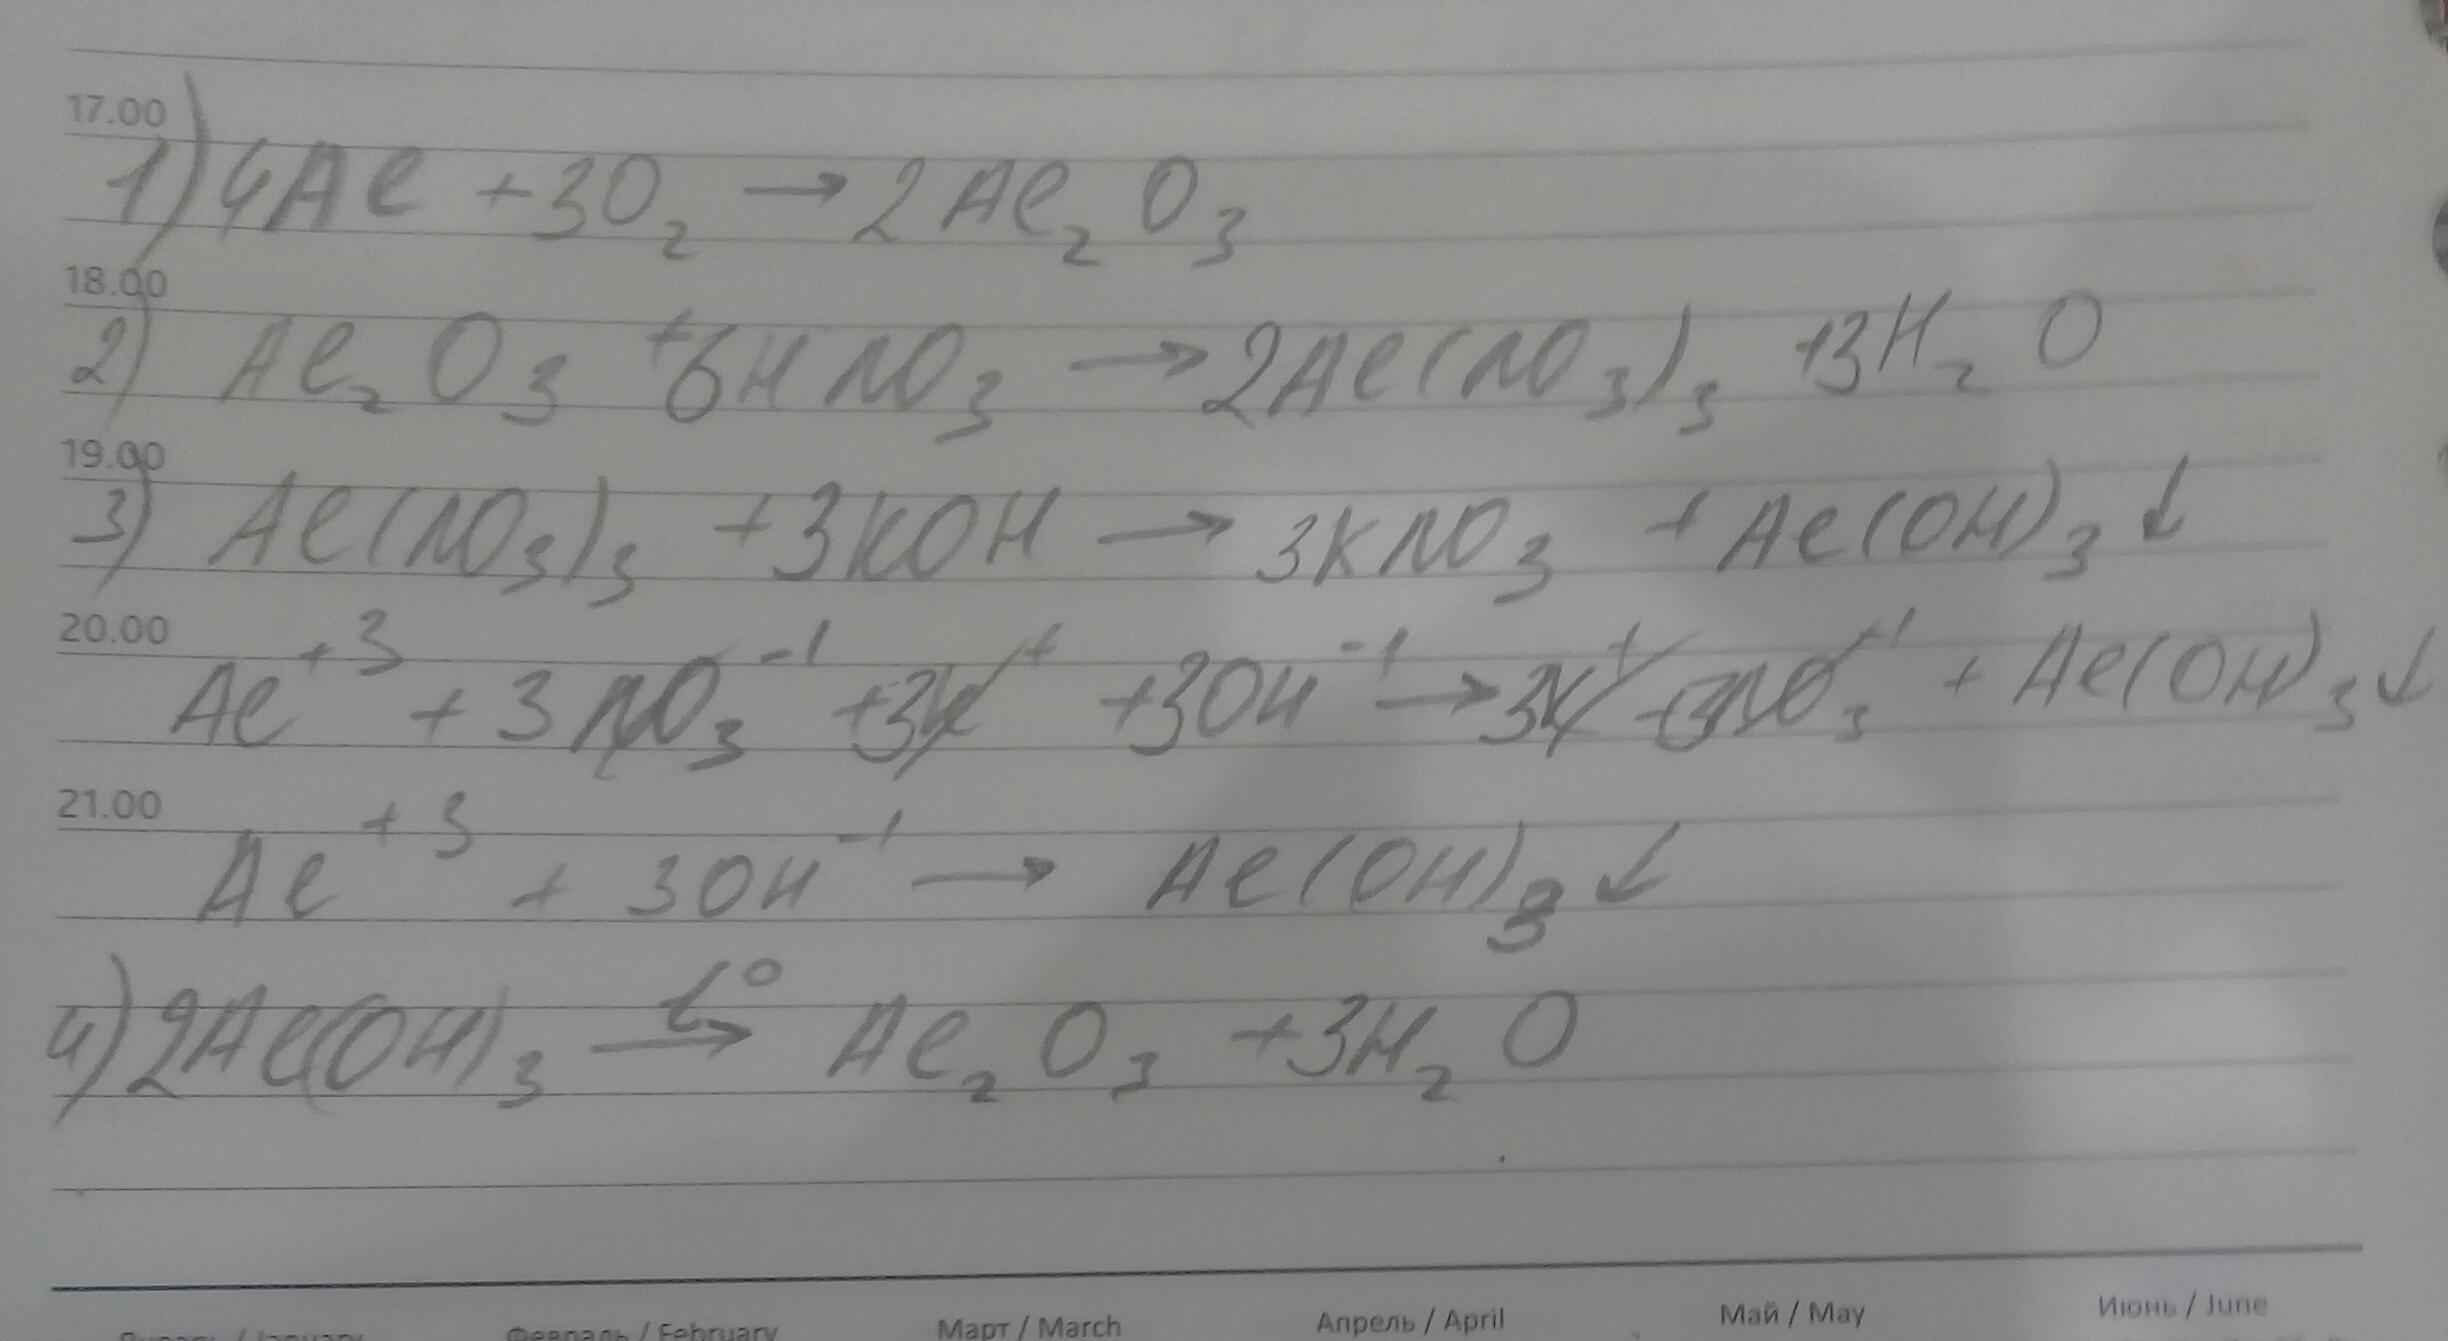 17.00
1) 4Al + 3O₂ → 2Al₂O₃
18.00
2) Al₂O₃ + 6HNO₃ → 2Al(NO₃)₃ + 3H₂O
19.00
3) Al(NO₃)₃ + 3KOH → 3KNO₃ + Al(OH)₃↓
20.00
Al⁺³ + 3NO₃⁻¹ + 3K⁺ + 3OH⁻¹ → 3K⁺ + 3NO₃⁻¹ + Al(OH)₃↓
21.00
Al⁺³ + 3OH⁻¹ → Al(OH)₃↓
4) 2Al(OH)₃ →t° Al₂O₃ + 3H₂O
Январь / January Февраль / February Март / March Апрель / April Май / May Июнь / June